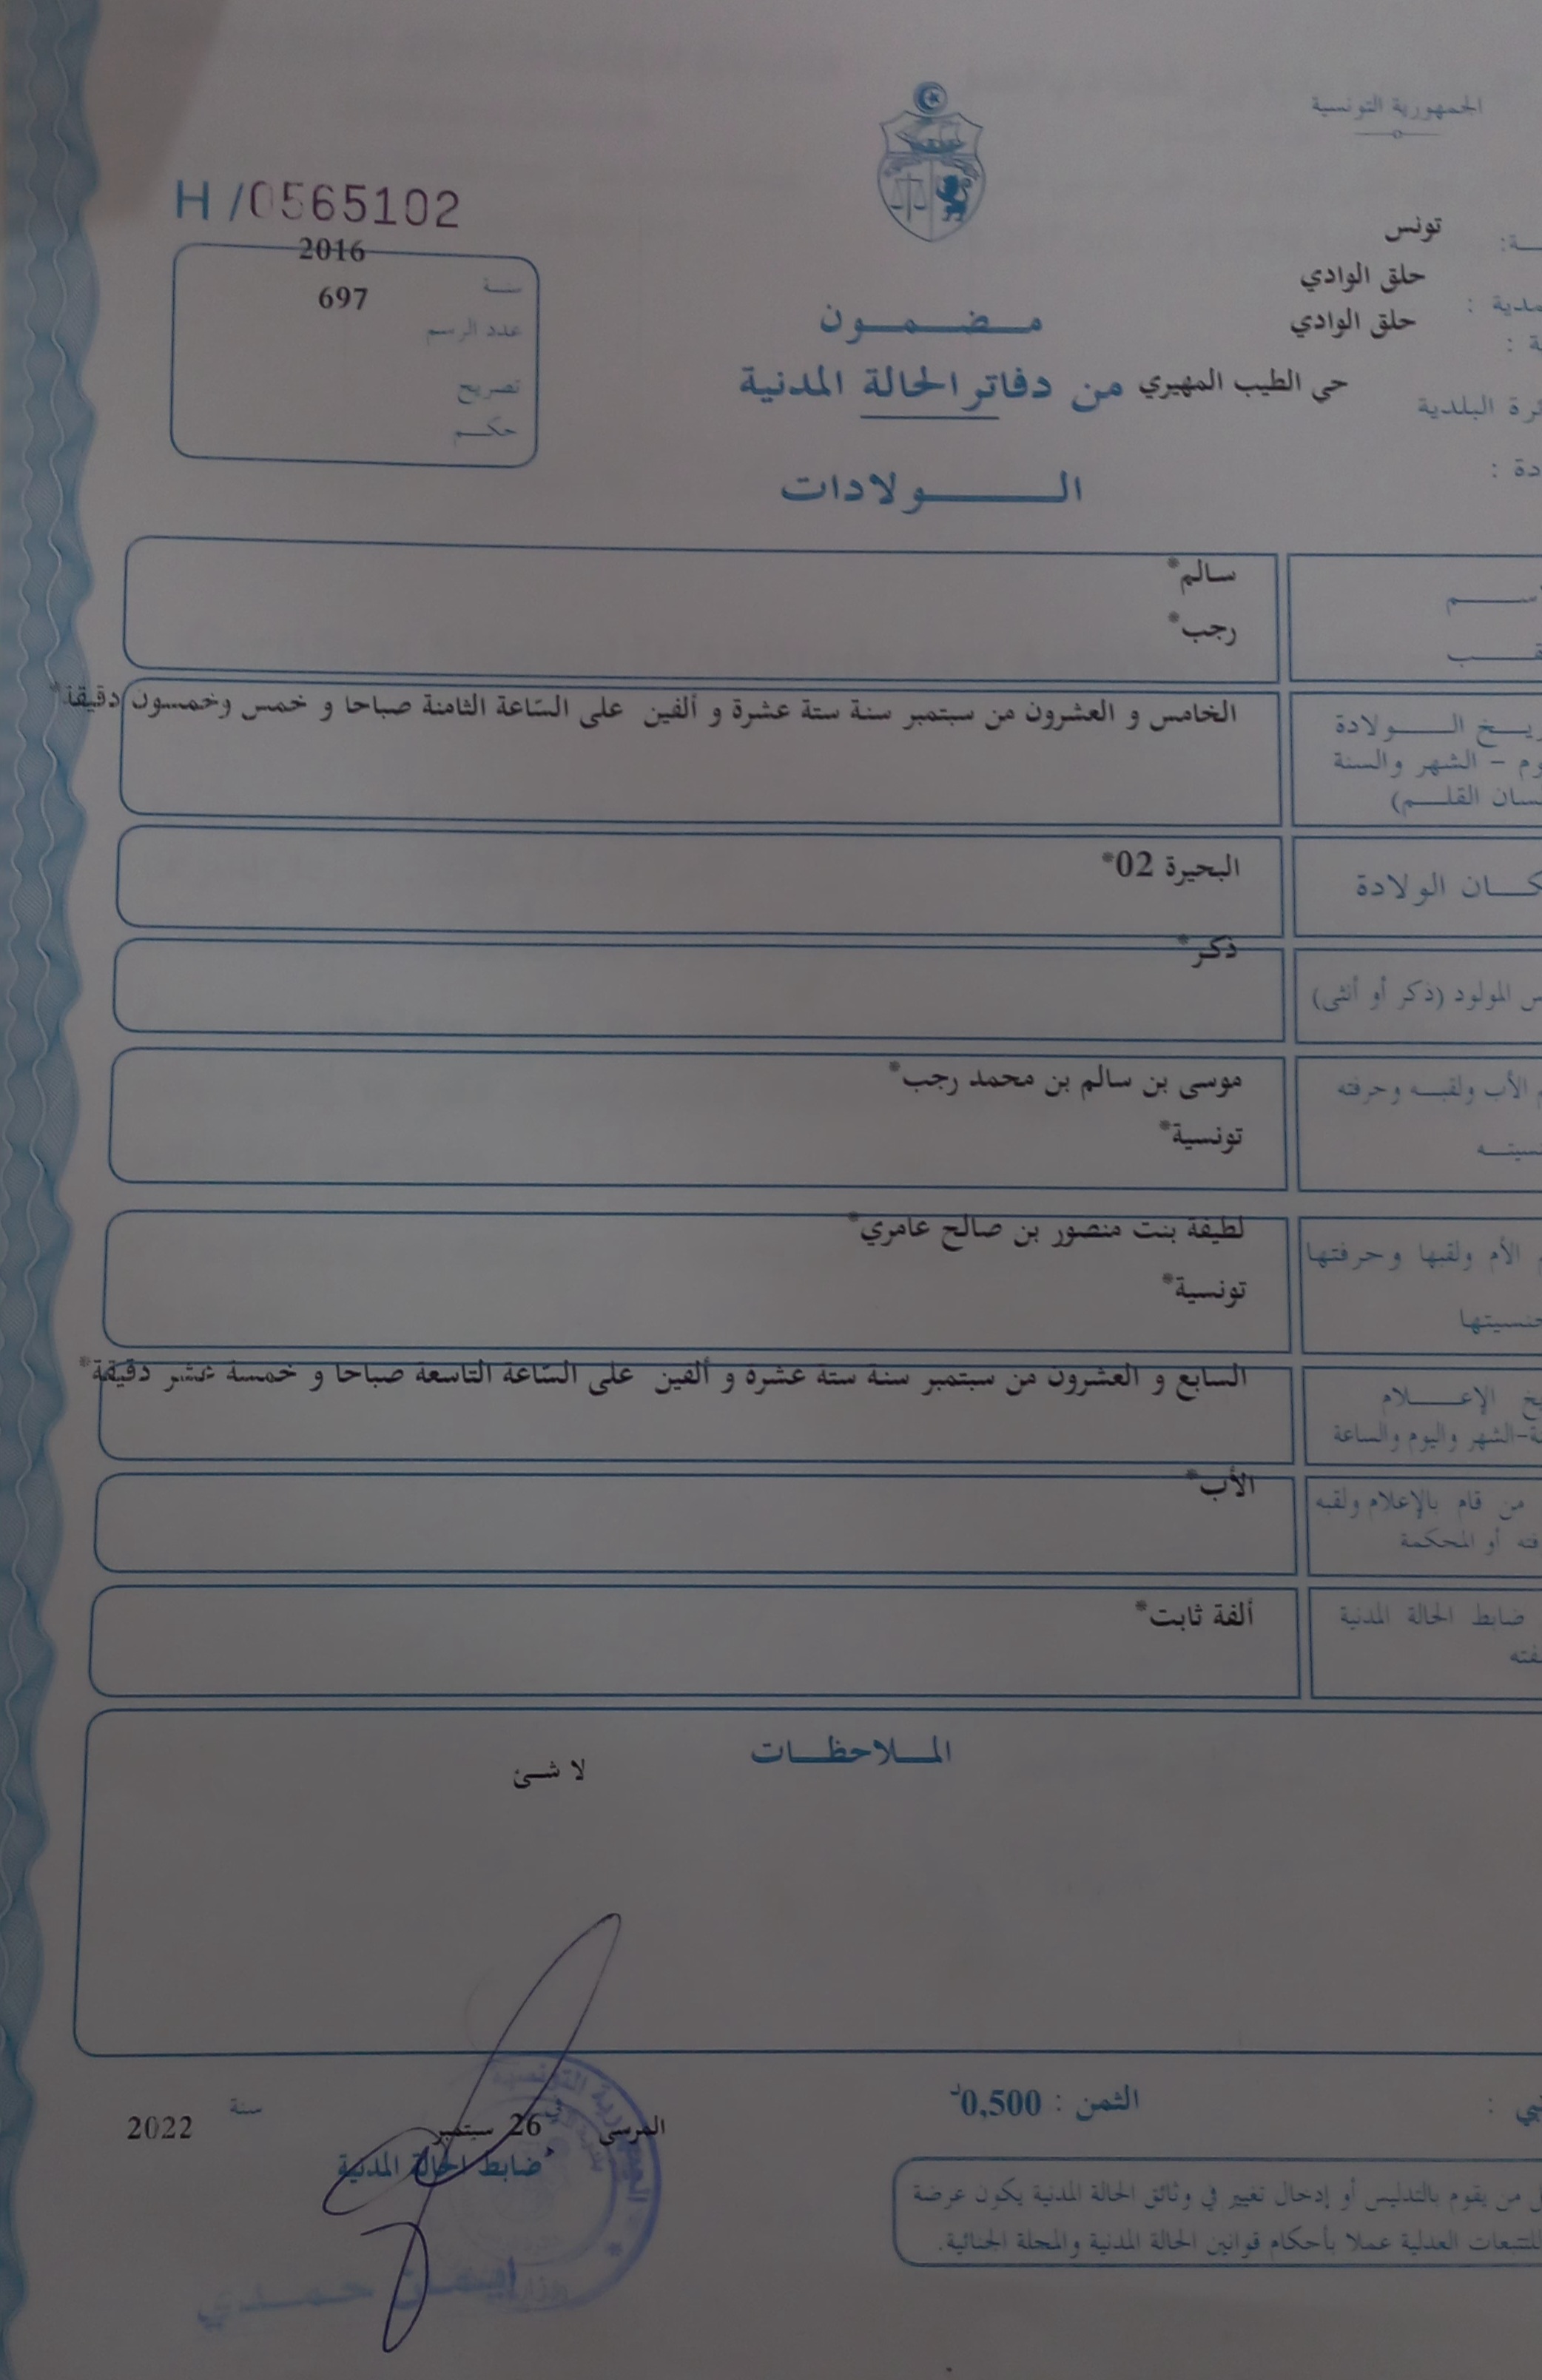 الجمهورية التونسية
H /0565102
تونس
حلق الوادي
حلق الوادي
حي الطيب المهيري
ـرة البلدية
2016
سنة
697
عدد الرسم
تصريح
حكم
مضمون
من دفاتر الحالة المدنية
الولادات
سالم*
رجب*
ـريخ الولادة
ـوم - الشهر والسنة
ـسان القلم)
الخامس و العشرون من سبتمبر سنة ستة عشرة و ألفين على الساعة الثامنة صباحا و خمس وخمسون دقيقة*
ـكان الولادة
البحيرة 02*
ـس المولود (ذكر أو أنثى)
ذكر*
ـم الأب ولقبه وحرفته
ـسيته
موسى بن سالم بن محمد رجب*
تونسية*
ـم الأم ولقبها وحرفتها
ـجنسيتها
لطيفة بنت منصور بن صالح عامري*
تونسية*
ـيخ الإعلام
ـة-الشهر واليوم والساعة
السابع و العشرون من سبتمبر سنة ستة عشرة و ألفين على الساعة التاسعة صباحا و خمسة عشر دقيقة*
من قام بالإعلام ولقبه
ـفته أو المحكمة
الأب*
ضابط الحالة المدنية
ـفته
ألفة ثابت*
الملاحظات
لا شئ
الثمن : 0,500د
المرسى في 26 سبتمبر سنة 2022
ضابط الحالة المدنية
ـل من يقوم بالتدليس أو إدخال تغيير في وثائق الحالة المدنية يكون عرضة
للتتبعات العدلية عملا بأحكام قوانين الحالة المدنية والمجلة الجنائية.
ايمن حمدي